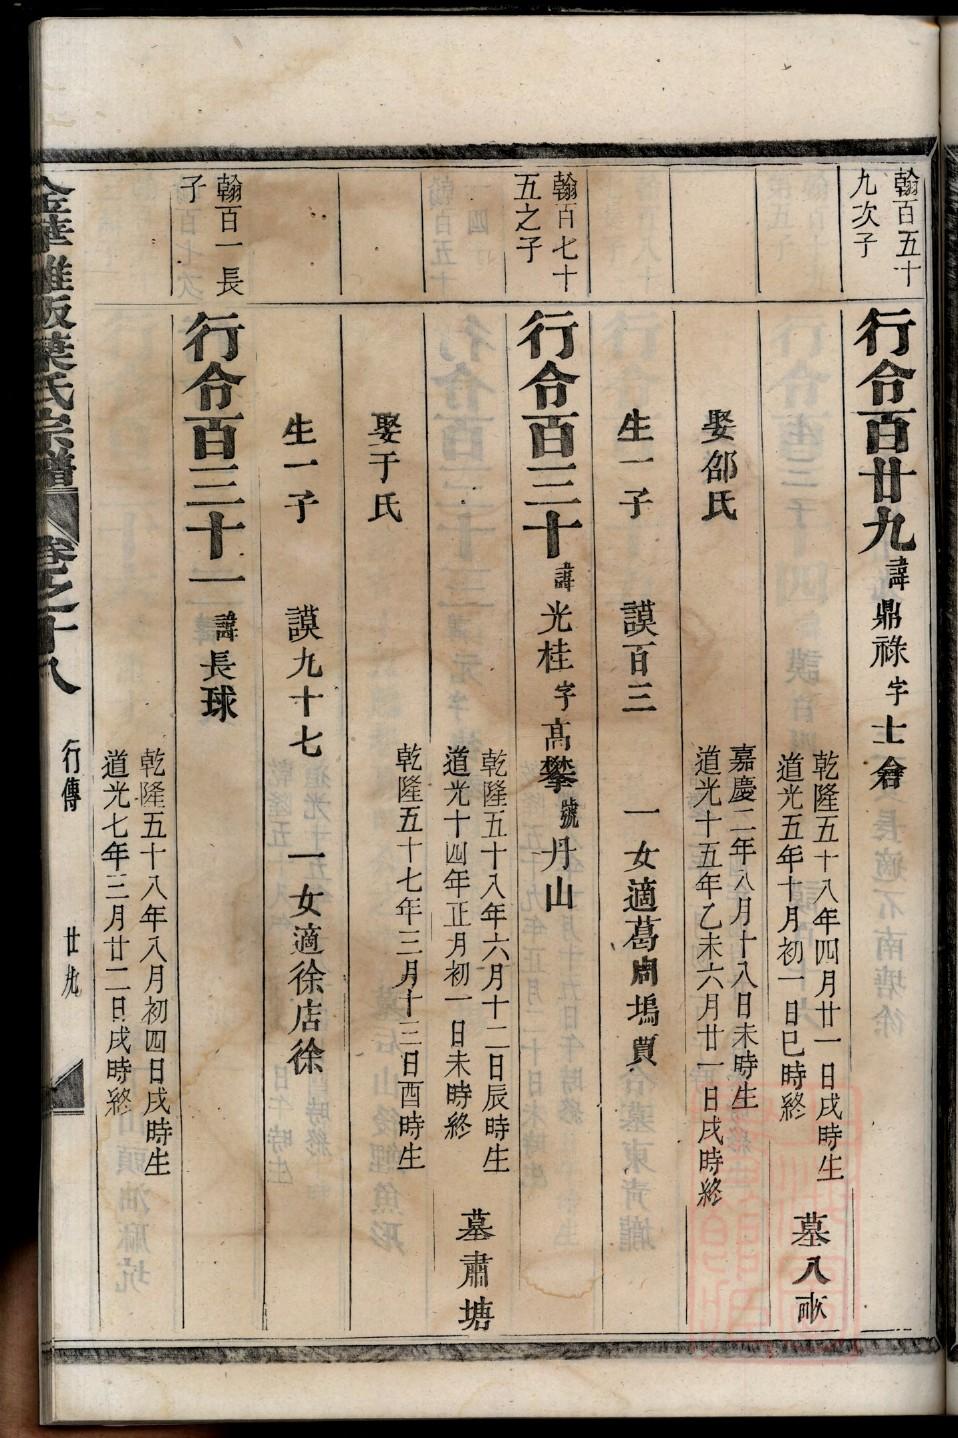 翰百五十
九次子
行令百廿九 諱鼎祿 字士倉
乾隆五十八年四月廿一日戌時生
道光五年十月初一日巳時終
墓八畝
娶邵氏
嘉慶二年八月十八日未時生
道光十五年乙未六月廿一日戌時終
生一子 謨百三 一女適葛周塢賈
翰百七十
五之子
行令百三十 諱光桂 字高攀 號丹山
乾隆五十八年六月十二日辰時生
道光十四年正月初一日未時終
墓肅塘
娶于氏
乾隆五十七年三月十三日酉時生
生一子 謨九十七 一女適徐店徐
翰百一長
子
行令百三十一 諱長球
乾隆五十八年八月初四日戌時生
道光七年三月廿二日戌時終
金華雅畈葉氏宗譜 卷之十八 行傳 廿九